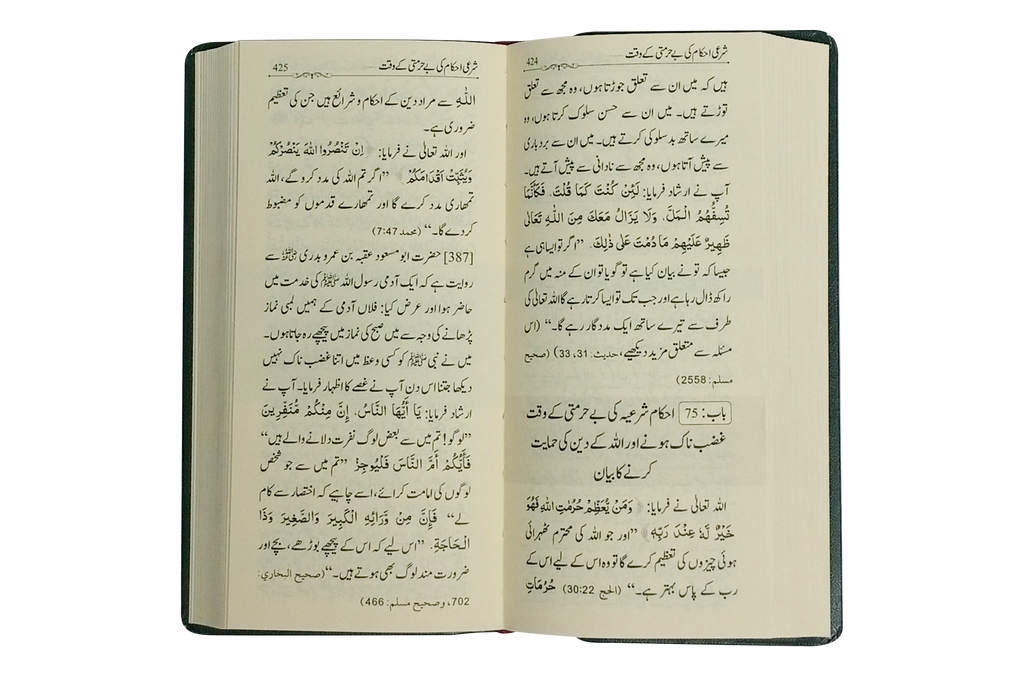 شرعی احکام کی بے حرمتی کے وقت
424
ہیں کہ میں ان سے تعلق جوڑتا ہوں، وہ مجھ سے تعلق
توڑتے ہیں۔ میں ان سے حسن سلوک کرتا ہوں، وہ
میرے ساتھ بدسلوکی کرتے ہیں۔ میں ان سے بردباری
سے پیش آتا ہوں، وہ مجھ سے نادانی سے پیش آتے ہیں۔
آپ نے ارشاد فرمایا: لَئِنْ كُنْتَ كَمَا قُلْتَ، فَكَأَنَّمَا
تُسِفُّهُمُ الْمَلَّ، وَلَا يَزَالُ مَعَكَ مِنَ اللّٰهِ تَعَالٰى
ظَهِيرٌ عَلَيْهِمْ مَا دُمْتَ عَلٰى ذٰلِكَ. ”اگر تو ایسا ہی ہے
جیسا کہ تو نے بیان کیا ہے تو گویا تو ان کے منہ میں گرم
راکھ ڈال رہا ہے اور جب تک تو ایسا کرتا رہے گا اللہ تعالیٰ کی
طرف سے تیرے ساتھ ایک مددگار رہے گا۔“ (اس
مسئلہ سے متعلق مزید دیکھیے، حدیث: 31، 33) (صحیح
مسلم: 2558)
باب: 75 احکام شرعیہ کی بے حرمتی کے وقت
غضب ناک ہونے اور اللہ کے دین کی حمایت
کرنے کا بیان
اللہ تعالیٰ نے فرمایا: ﴿وَمَنْ يُّعَظِّمْ حُرُمٰتِ اللّٰهِ فَهُوَ
خَيْرٌ لَّهٗ عِنْدَ رَبِّهٖ﴾ ”اور جو اللہ کی محترم ٹھہرائی
ہوئی چیزوں کی تعظیم کرے گا تو وہ اس کے لیے اس کے
رب کے پاس بہتر ہے۔“ (الحج 30:22) حُرُمَاتِ
شرعی احکام کی بے حرمتی کے وقت
425
اللّٰهِ سے مراد دین کے احکام و شرائع ہیں جن کی تعظیم
ضروری ہے۔
اور اللہ تعالیٰ نے فرمایا: ﴿اِنْ تَنْصُرُوا اللّٰهَ يَنْصُرْكُمْ
وَيُثَبِّتْ اَقْدَامَكُمْ﴾ ”اگر تم اللہ کی مدد کرو گے، اللہ
تمھاری مدد کرے گا اور تمھارے قدموں کو مضبوط
کر دے گا۔“ (محمد 7:47)
[387] حضرت ابو مسعود عقبہ بن عمرو بدری رضی اللہ عنہ سے
روایت ہے کہ ایک آدمی رسول اللہ ﷺ کی خدمت میں
حاضر ہوا اور عرض کیا: فلاں آدمی کے ہمیں لمبی نماز
پڑھانے کی وجہ سے میں صبح کی نماز میں پیچھے رہ جاتا ہوں۔
میں نے نبی ﷺ کو کسی وعظ میں اتنا غضب ناک نہیں
دیکھا جتنا اس دن آپ نے غصے کا اظہار فرمایا۔ آپ نے
ارشاد فرمایا: يَا أَيُّهَا النَّاسُ، إِنَّ مِنْكُمْ مُنَفِّرِينَ
”لوگو! تم میں سے بعض لوگ نفرت دلانے والے ہیں“
فَأَيُّكُمْ أَمَّ النَّاسَ فَلْيُوجِزْ ”تم میں سے جو شخص
لوگوں کی امامت کرائے، اسے چاہیے کہ اختصار سے کام
لے“ فَإِنَّ مِنْ وَرَائِهِ الْكَبِيرَ وَالصَّغِيرَ وَذَا
الْحَاجَةِ. ”اس لیے کہ اس کے پیچھے بوڑھے، بچے اور
ضرورت مند لوگ بھی ہوتے ہیں۔“ (صحیح البخاري:
702، وصحیح مسلم: 466)